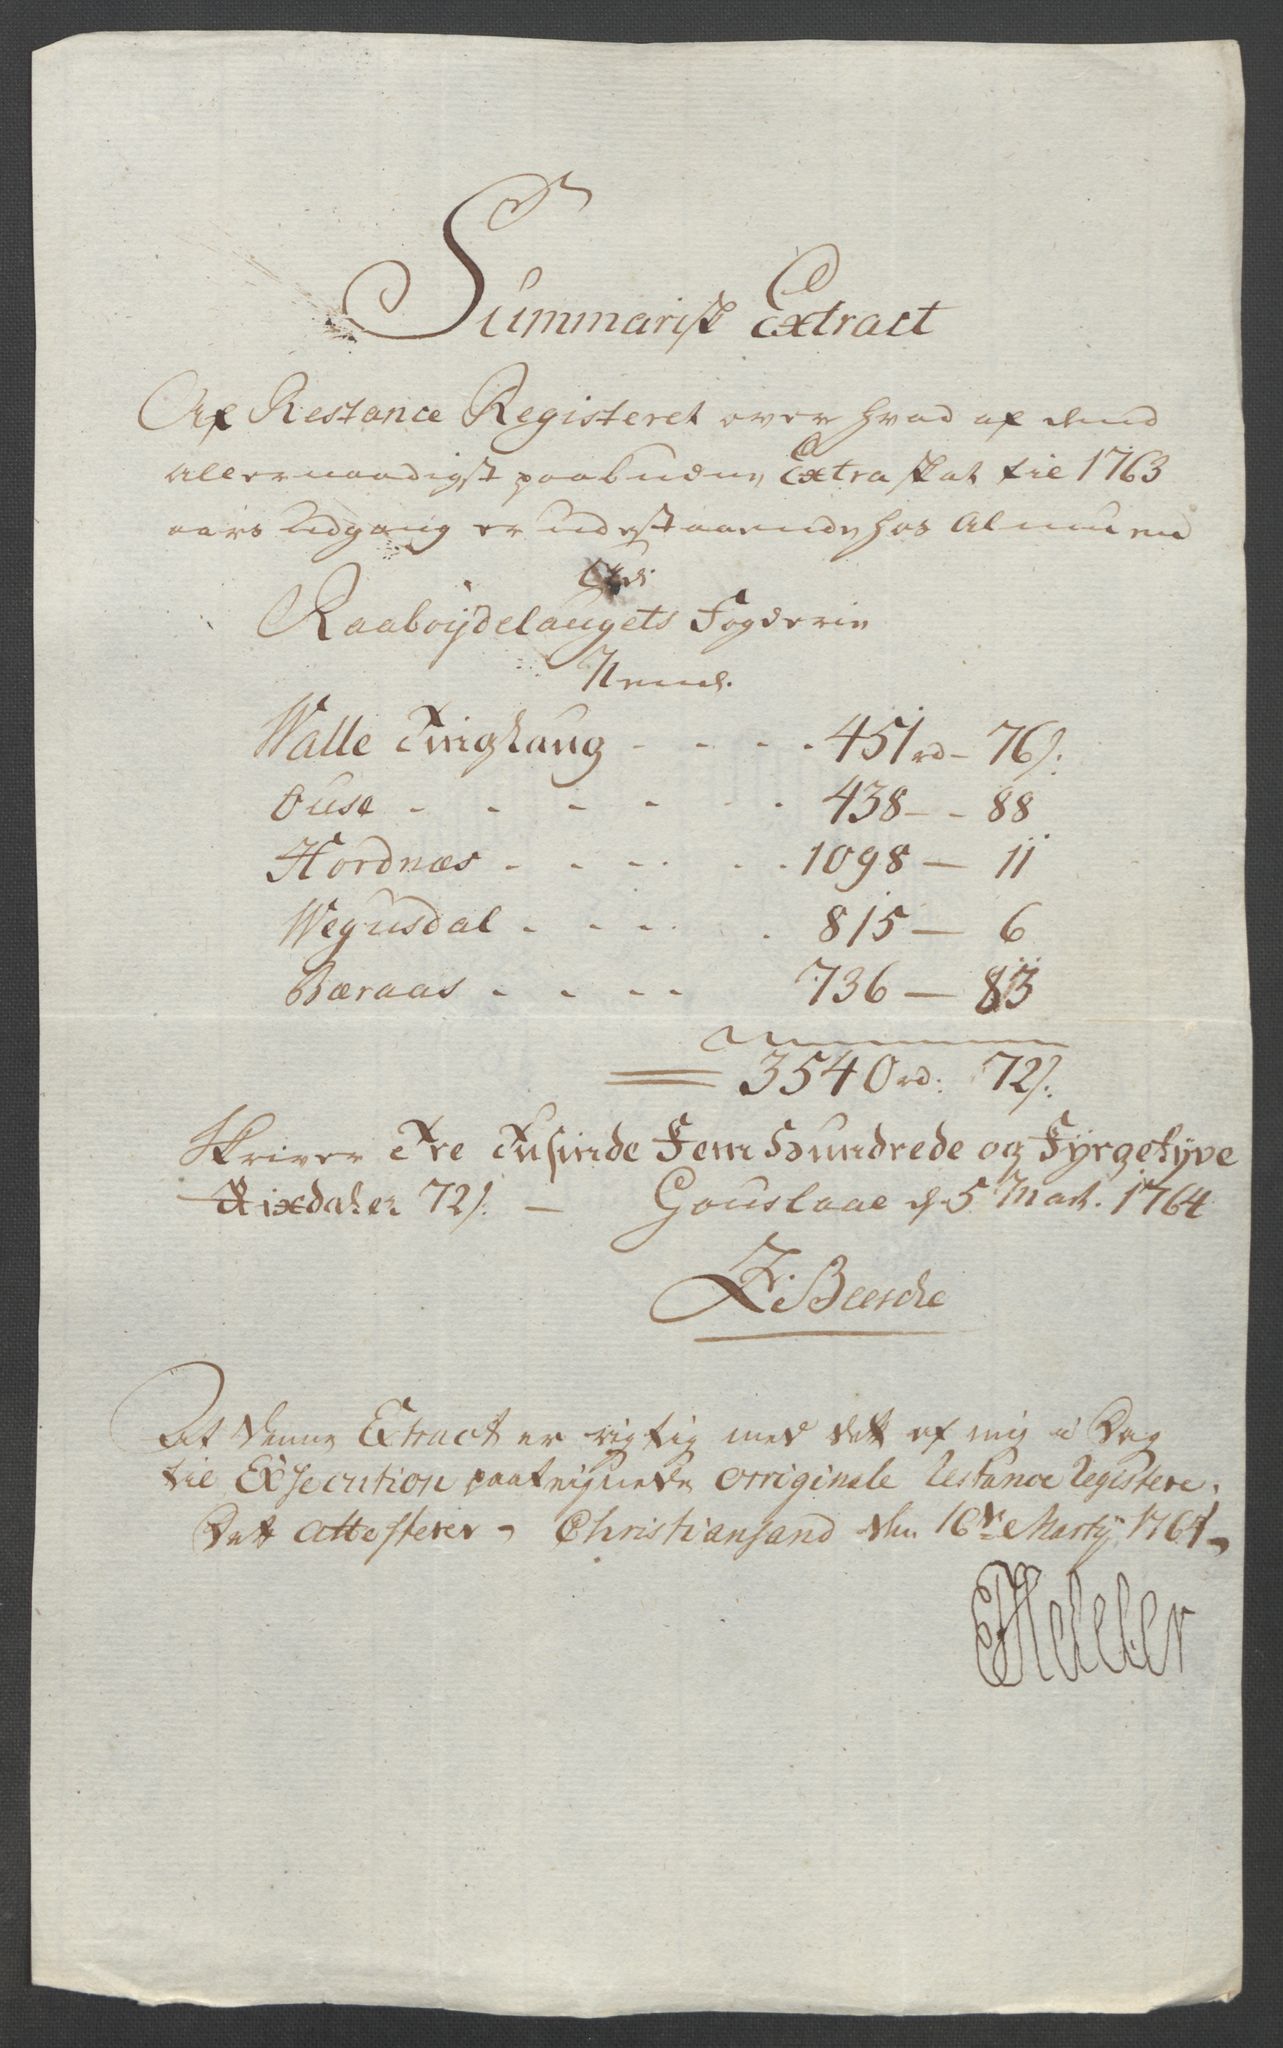 Summarisk Extract
Af Restance Registeret over hvad af dend
allernaadigst paabudne Extra skat til 1763
aars Udgang er udestaaende hos Almuen
udi
Raaboÿdelaugets Fogderie
Nemlg.
Walle Tinglaug - - - - 451 rd - 76 s:
Ouse - - - - - - 438 - - 88
Hordnæs - - - - - - 1098 - 11
Wegusdal - - - - - 815 - 6
Bæraas - - - - 736 - 83
3540 rd: 72 s:
Skriver Tre Tusinde Fem Hundrede og Fyrgetyve
Rixdaler 72 s: - Gouslaae d. 5 Mart. 1764
At denne Extract er rigtig med dett af mig i Dag
til Exsecution paateignede orriginale Restance Registere,
Dett attesterer, Christiansand den 16de Martÿ 1764,